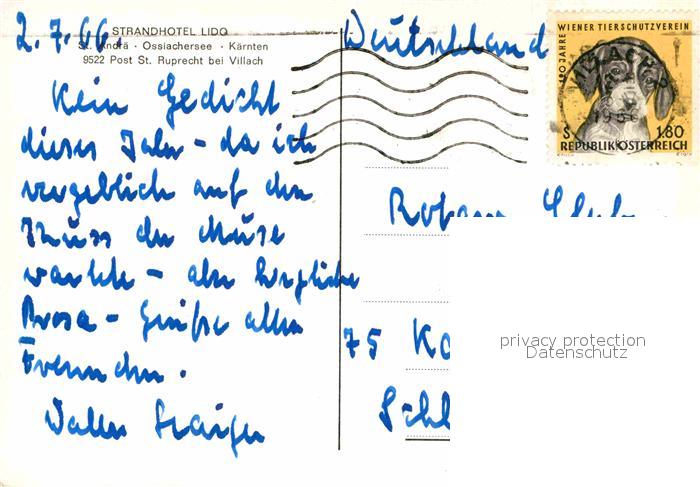 2.7.66.
STRANDHOTEL LIDO
St. Andrä · Ossiachersee · Kärnten
9522 Post St. Ruprecht bei Villach
Kein Gedicht
dieses Jahr – da ich
vergeblich auf den
Kuss der Muse
wartete – aber herzliche
Prosa – Grüße allen
Freunden.
Deutschland
100 JAHRE WIENER TIERSCHUTZVEREIN
VILLACH
S 1.80
REPUBLIK ÖSTERREICH
75 Ka
Schl
privacy protection
Datenschutz